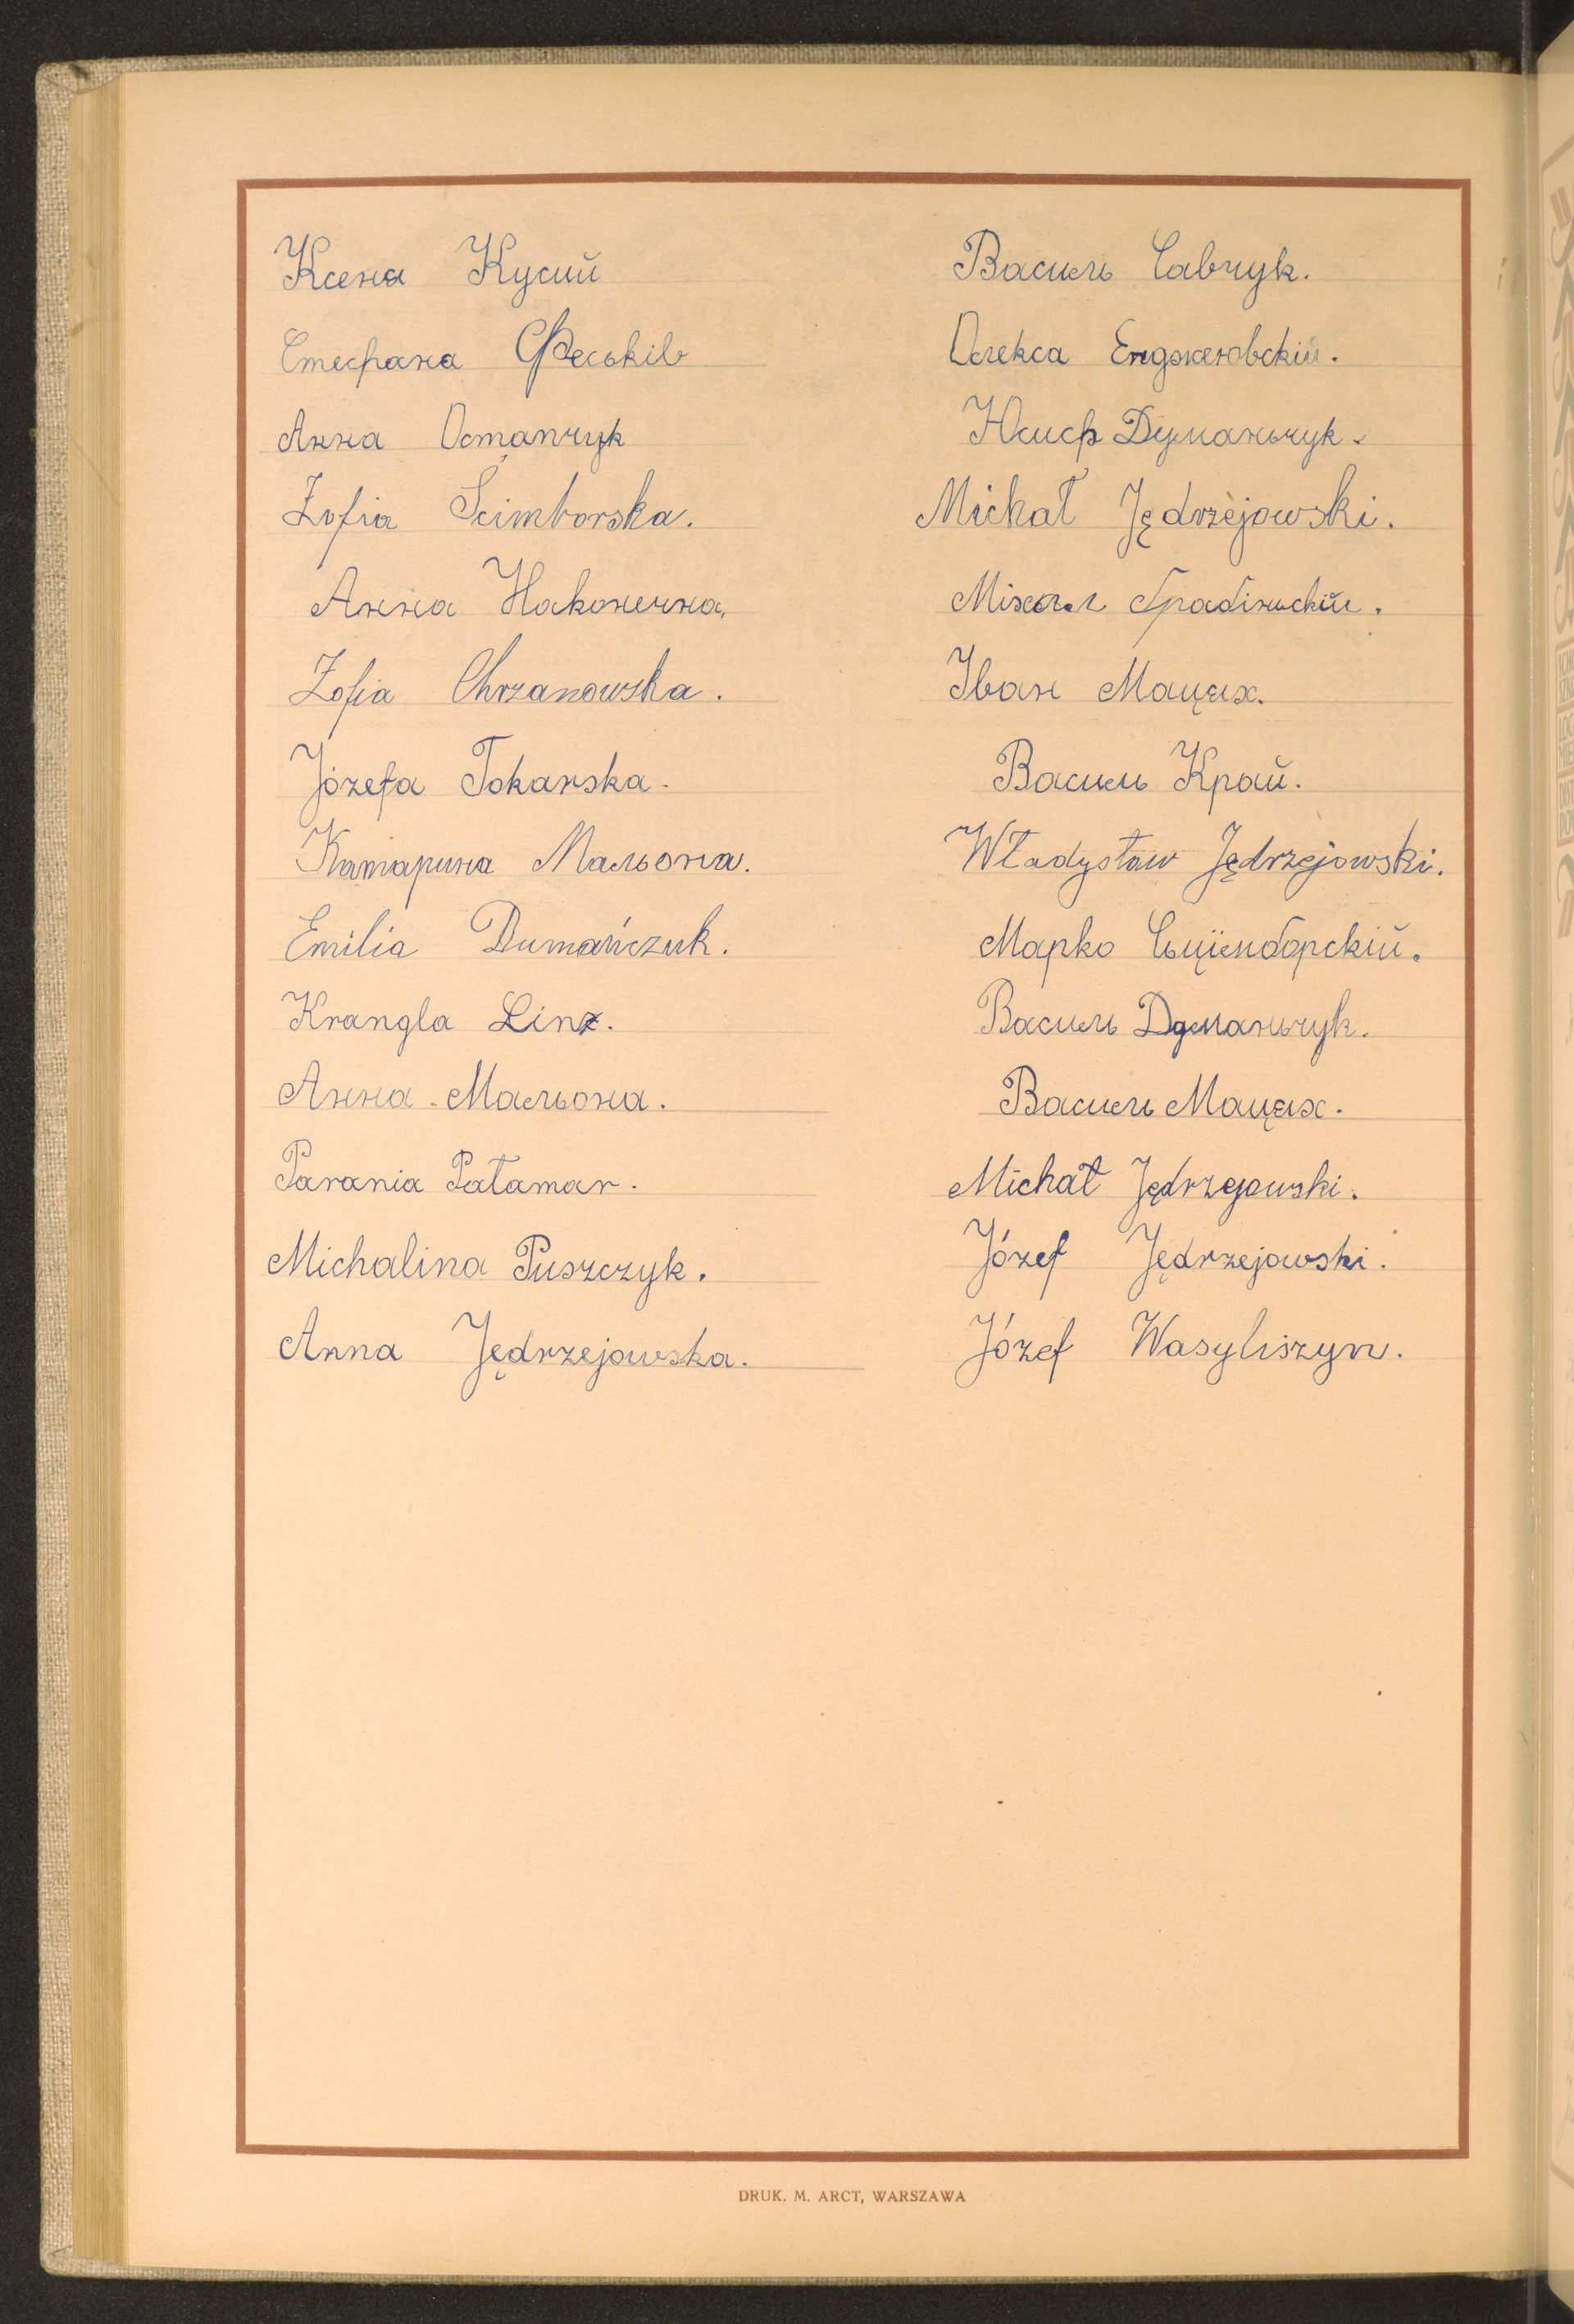 Ксена Кусий
Стефана Феськів
Анна Остапчук
Zofia Ścimborska.
Анна Наконечна,
Zofia Chrzanowska.
Józefa Tokarska.
Катарина Мальона.
Emilia Dumańczuk.
Krangla Linz.
Анна Мальона.
Parania Patamar.
Michalina Puszczyk.
Anna Jędrzejowska.
Василь Савчук.
Олекса Енджеювскій.
Юсиф Думаньчук.
Michał Jędrzejowski.
Міхал Грабіньскій.
Іван Мацєх.
Василь Край.
Władysław Jędrzejowski.
Марко Сьцїемборскій.
Василь Думаньчук.
Василь Мацєх.
Michał Jędrzejowski.
Józef Jędrzejowski.
Józef Wasyliszyn.
DRUK. M. ARCT, WARSZAWA